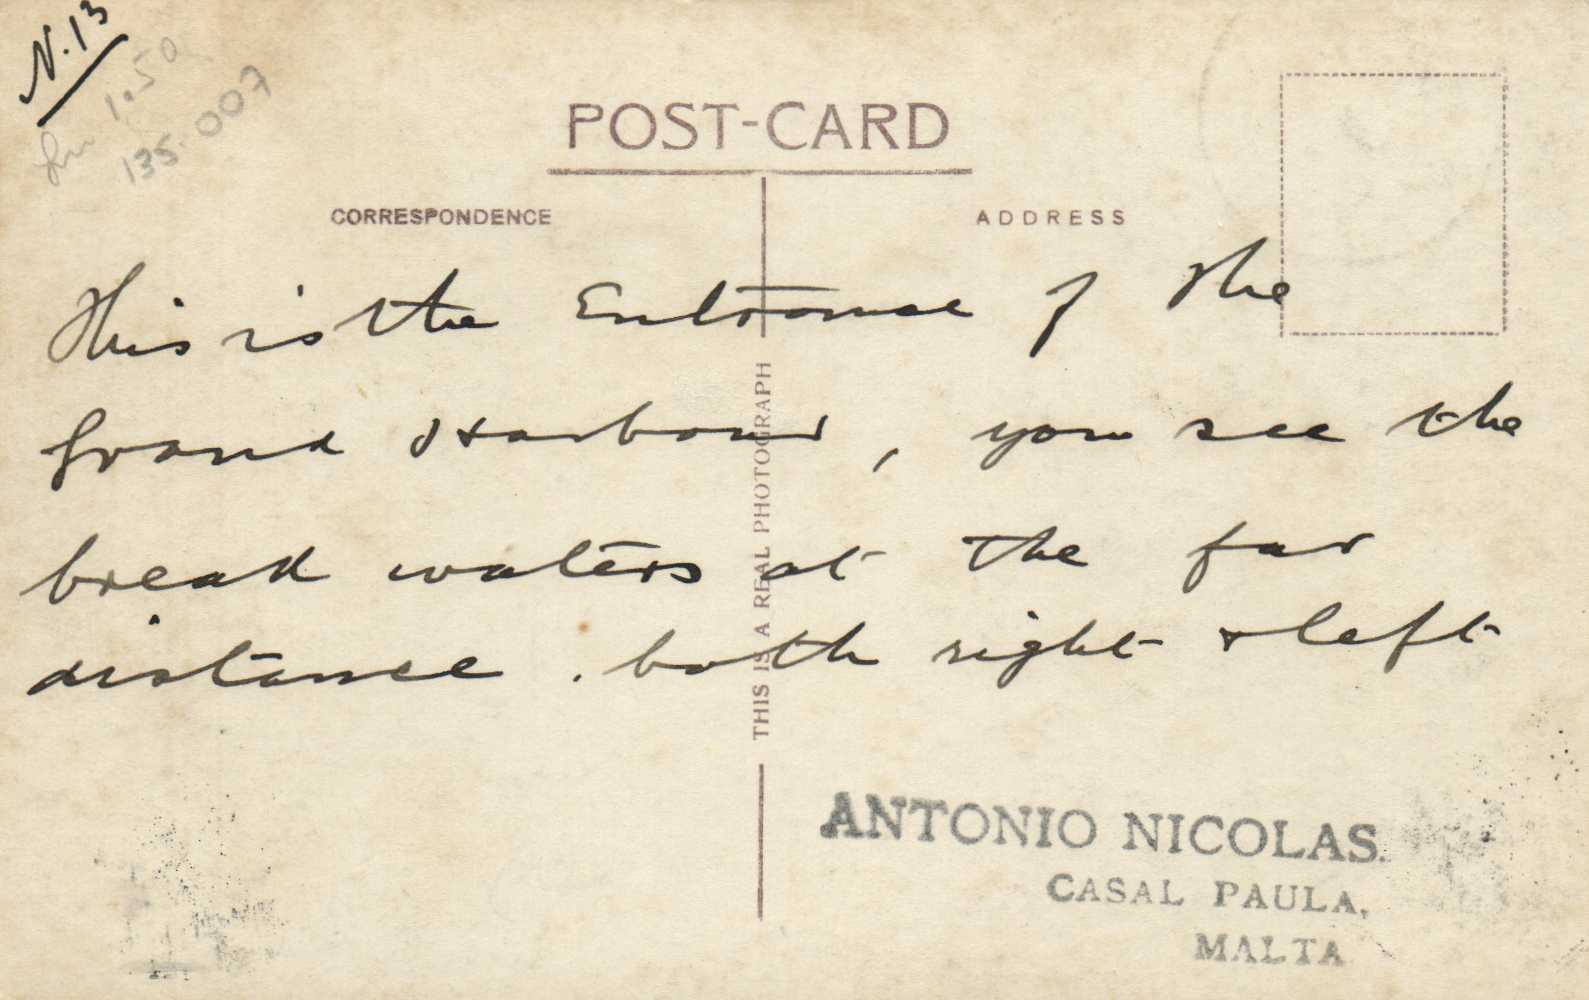 N.13
1.50
135.007
POST-CARD
CORRESPONDENCE
ADDRESS
This is the Entrance of the
Grand Harbour, you see the
break waters at the far
distance. both right & left
THIS IS A REAL PHOTOGRAPH
ANTONIO NICOLAS.
CASAL PAULA,
MALTA